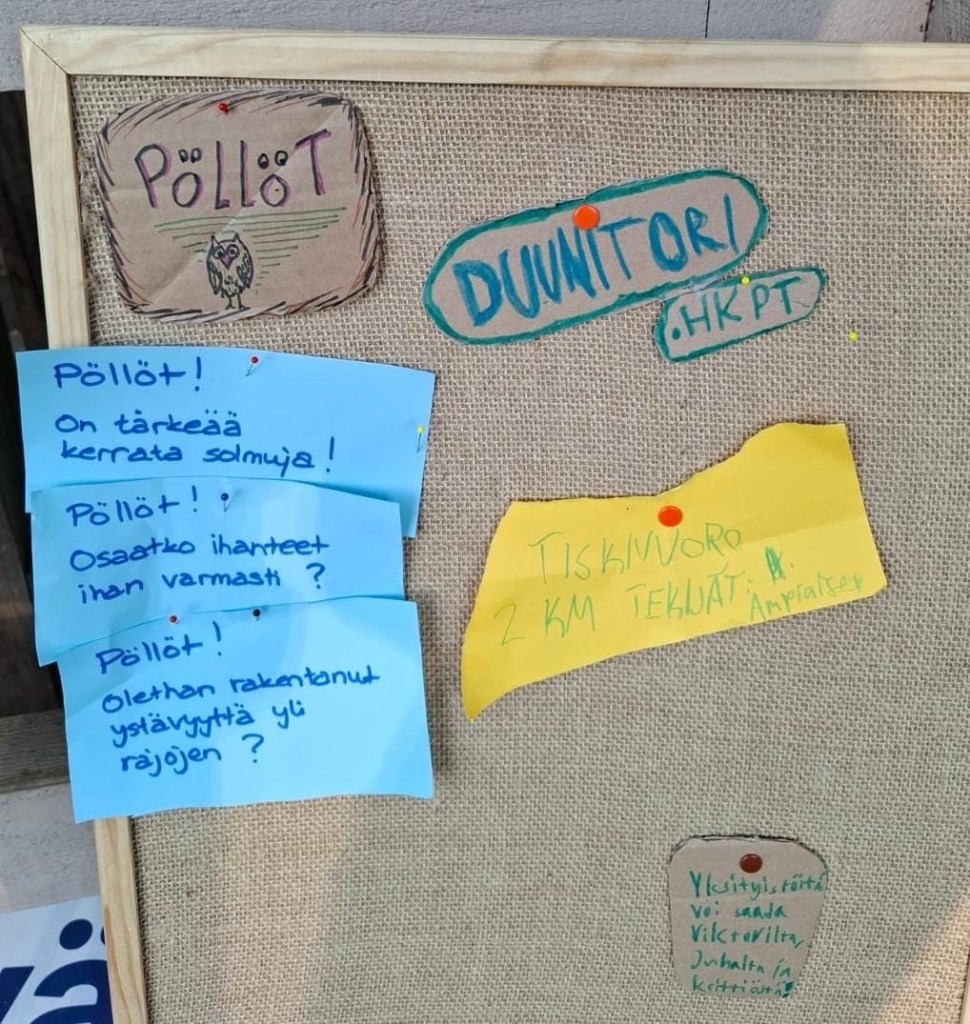 PÖLLÖT
DUUNITORI
.HKPT
Pöllöt!
On tärkeää
kerrata solmuja!
Pöllöt!
Osaatko ihanteet
ihan varmasti ?
Pöllöt!
Olethan rakentanut
ystävyyttä yli
rajojen ?
TISKIVUORO
2 KM TEKIJÄT:
Yksityistöitä
voi saada
Viktorilta,
Juhalta ja
keittiöstä!